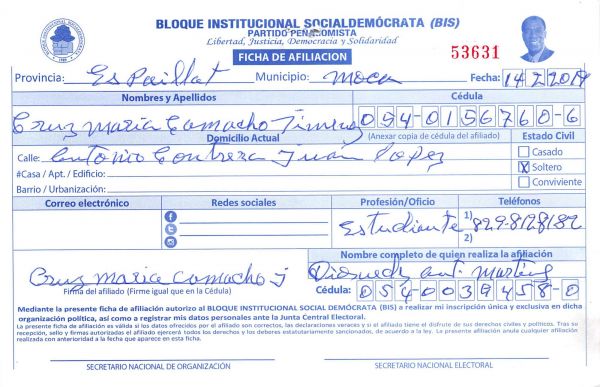 BLOQUE INSTITUCIONAL SOCIALDEMÓCRATA (BIS)
PARTIDO PEÑAGOMISTA
Libertad, Justicia, Democracia y Solidaridad
FICHA DE AFILIACION
53631
Provincia: Espaillat Municipio: Moca Fecha: 14/2/2019
Nombres y Apellidos Cédula
Cruz Maria Camacho 094-0156760-6
Domicilio Actual (Anexar copia de cédula del afiliado) Estado Civil
Calle: Antonio Contrera Juan Lopez Casado
#Casa / Apt. / Edificio: X Soltero
Barrio / Urbanización: Conviviente
Correo electrónico Redes sociales Profesión/Oficio Teléfonos
Estudiante 1) 829-8128182
2)
Nombre completo de quien realiza la afiliación
Cruz Maria Camacho J ant. Martinez
Firma del afiliado (Firme igual que en la Cédula) Cédula: 054-0039458-0
Mediante la presente ficha de afiliación autorizo al BLOQUE INSTITUCIONAL SOCIAL DEMÓCRATA (BIS) a realizar mi inscripción única y exclusiva en dicha
organización política, así como a registrar mis datos personales ante la Junta Central Electoral.
La presente ficha de afiliación es válida si los datos ofrecidos por el afiliado son correctos, las declaraciones veraces y si el afiliado tiene el disfrute de sus derechos civiles y políticos. Tras su
recepción, sello y firmas autorizadas el afiliado ejercerá todos los derechos y los deberes estatutariamente sancionados, de acuerdo a la ley. La presente afiliación anula cualquier afiliación
realizada con anterioridad a la fecha que aparece en esta ficha.
SECRETARIO NACIONAL DE ORGANIZACIÓN SECRETARIO NACIONAL ELECTORAL